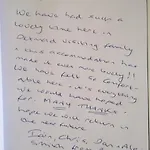 We have had such a
lovely time here in
Dedwaid visiting family
& this accommodation has
made it even more lovely!!
We have felt so comfor-
table here - it's everything
we would have hoped
for. MANY THANKS -
hope we will return in
the near future
Chris,